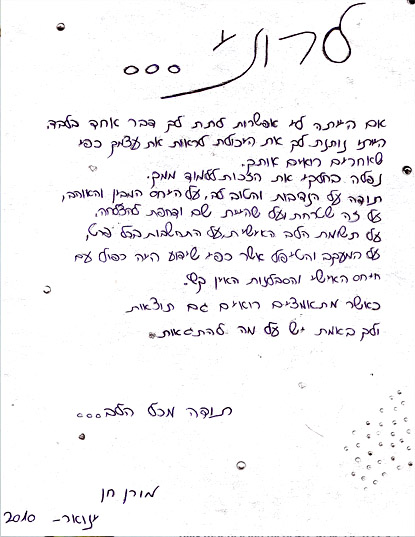 לרוני
ooo
אם הייתה לי אפשרות לתת לך דבר אחד בלבד,
הייתי נותנת לך את היכולת לראות את עצמך כפי
שאחרים רואים אותך.
נפלה בחלקי את הזכות ללמוד ממך.
תודה על הנדיבות והטוב לב, על היחס המבין והאוהב,
על זה שטרחת ועל שהיית שם ודחפת להצלחה,
על תשומת הלב האישית ועל ההתחשבות בכל פרט,
על המעקב והטיפול אשר כפי שידוע היה כפול עם
היחס האישי והסבלנות האין קץ.
כאשר מתאמצים רואים גם תוצאות
ולך באמת יש על מה להתגאות.
תודה מכל הלב...
מורן חן
ינואר- 2010